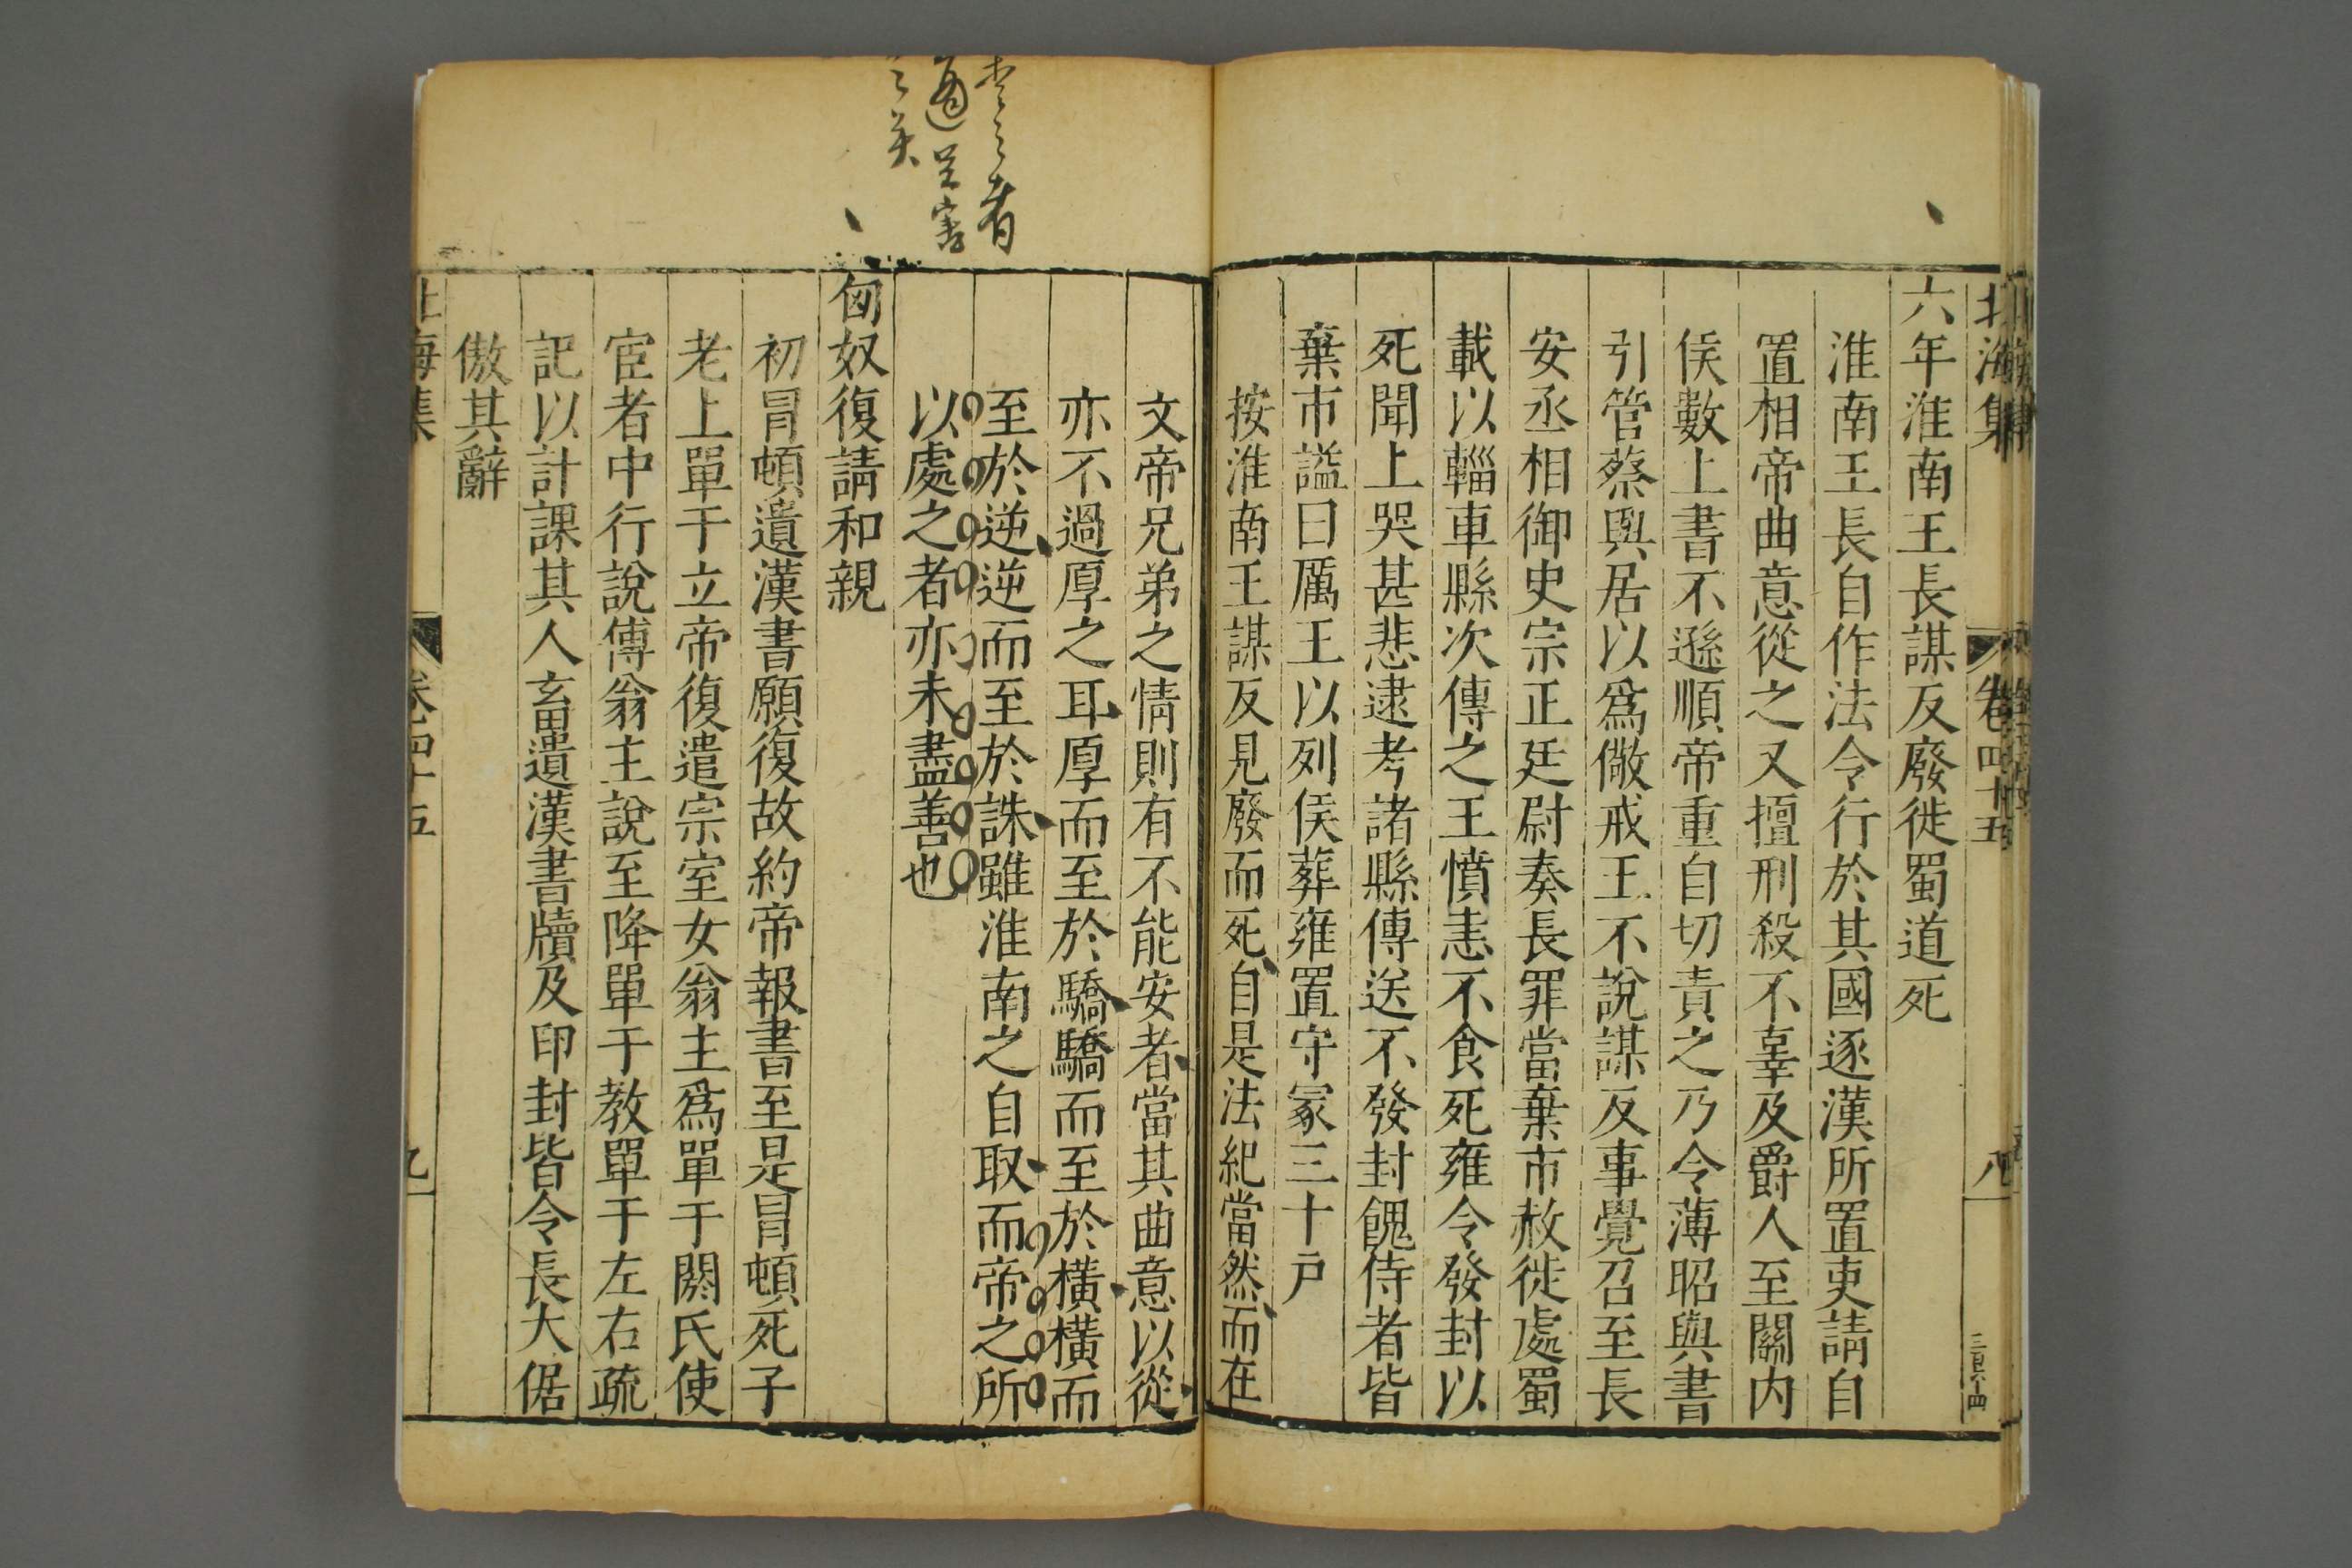 北海集 卷四十五 八 三百六十四
六年淮南王長謀反廢徙蜀道死
淮南王長自作法令行於其國逐漢所置吏請自
置相帝曲意從之又擅刑殺不辜及爵人至關內
侯數上書不遜順帝重自切責之乃令薄昭與書
引管蔡與居以爲儆戒王不說謀反事覺召至長
安丞相御史宗正廷尉奏長罪當棄市赦徙處蜀
載以輜車縣次傳之王憤恚不食死雍令發封以
死聞上哭甚悲逮考諸縣傳送不發封餽侍者皆
棄市謚曰厲王以列侯葬雍置守冢三十戶
按淮南王謀反見廢而死自是法紀當然而在
文帝兄弟之情則有不能安者當其曲意以從
亦不過厚之耳厚而至於驕驕而至於橫橫而
至於逆逆而至於誅雖淮南之自取而帝之所
以處之者亦未盡善也
匈奴復請和親
初冒頓遺漢書願復故約帝報書至是冒頓死子
老上單于立帝復遣宗室女翁主爲單于閼氏使
宦者中行說傅翁主說至降單于教單于左右疏
記以計課其人畜遺漢書牘及印封皆令長大倨
傲其辭
北海集 卷四十五 九